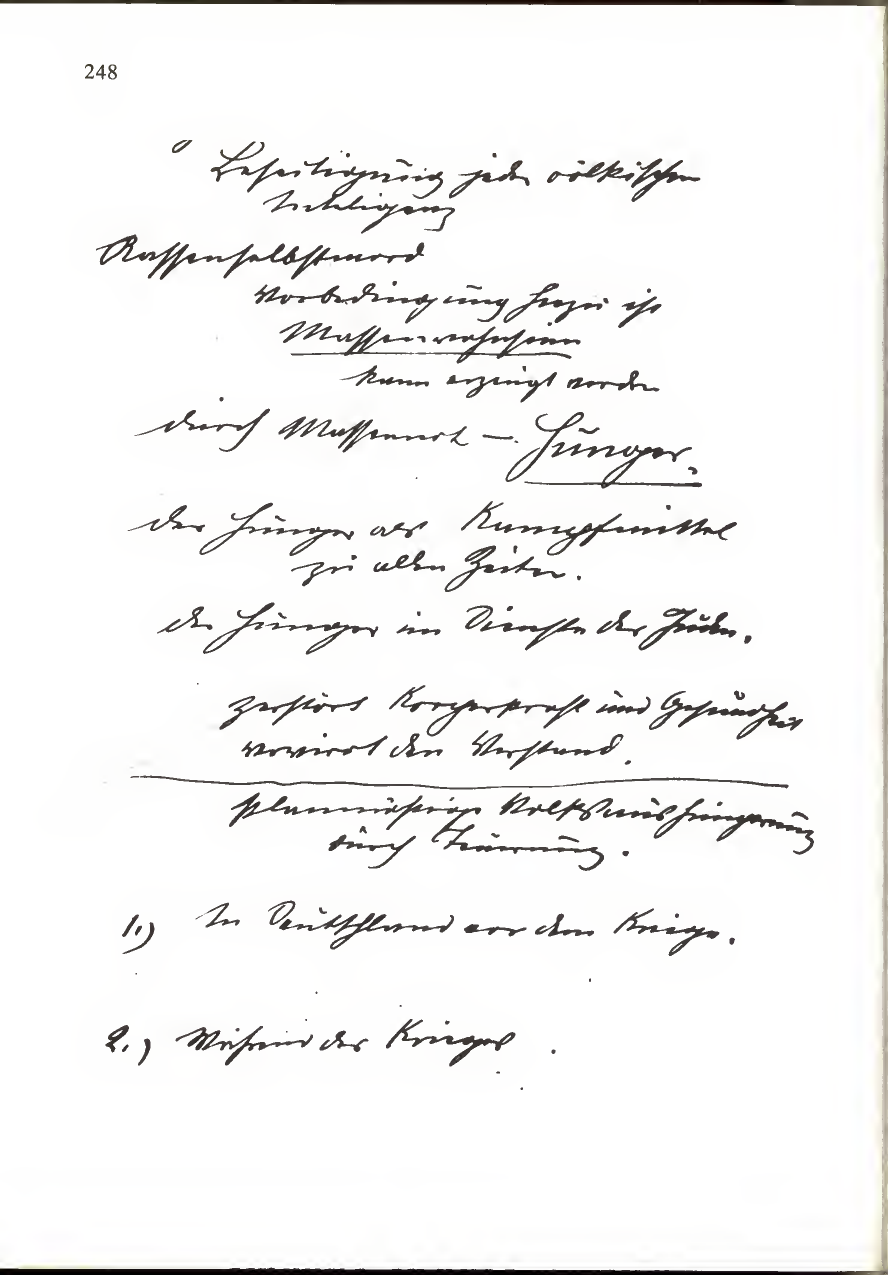 248
Beseitigung jeder völkischen
Intelligenz
Rassenselbstmord
Vorbedingung hiezu ist
Massenwahnsinn
kann erzeugt werden
durch Massennot — Hunger.
der Hunger als Kampfmittel
zu allen Zeiten.
der Hunger im Dienste der Juden.
zerstört Körperkraft und Gesundheit
verwirrt den Verstand.
planmäßige Volksaushungerung
durch Teuerung.
1.) In Deutschland vor dem Kriege.
2.) Während des Krieges.